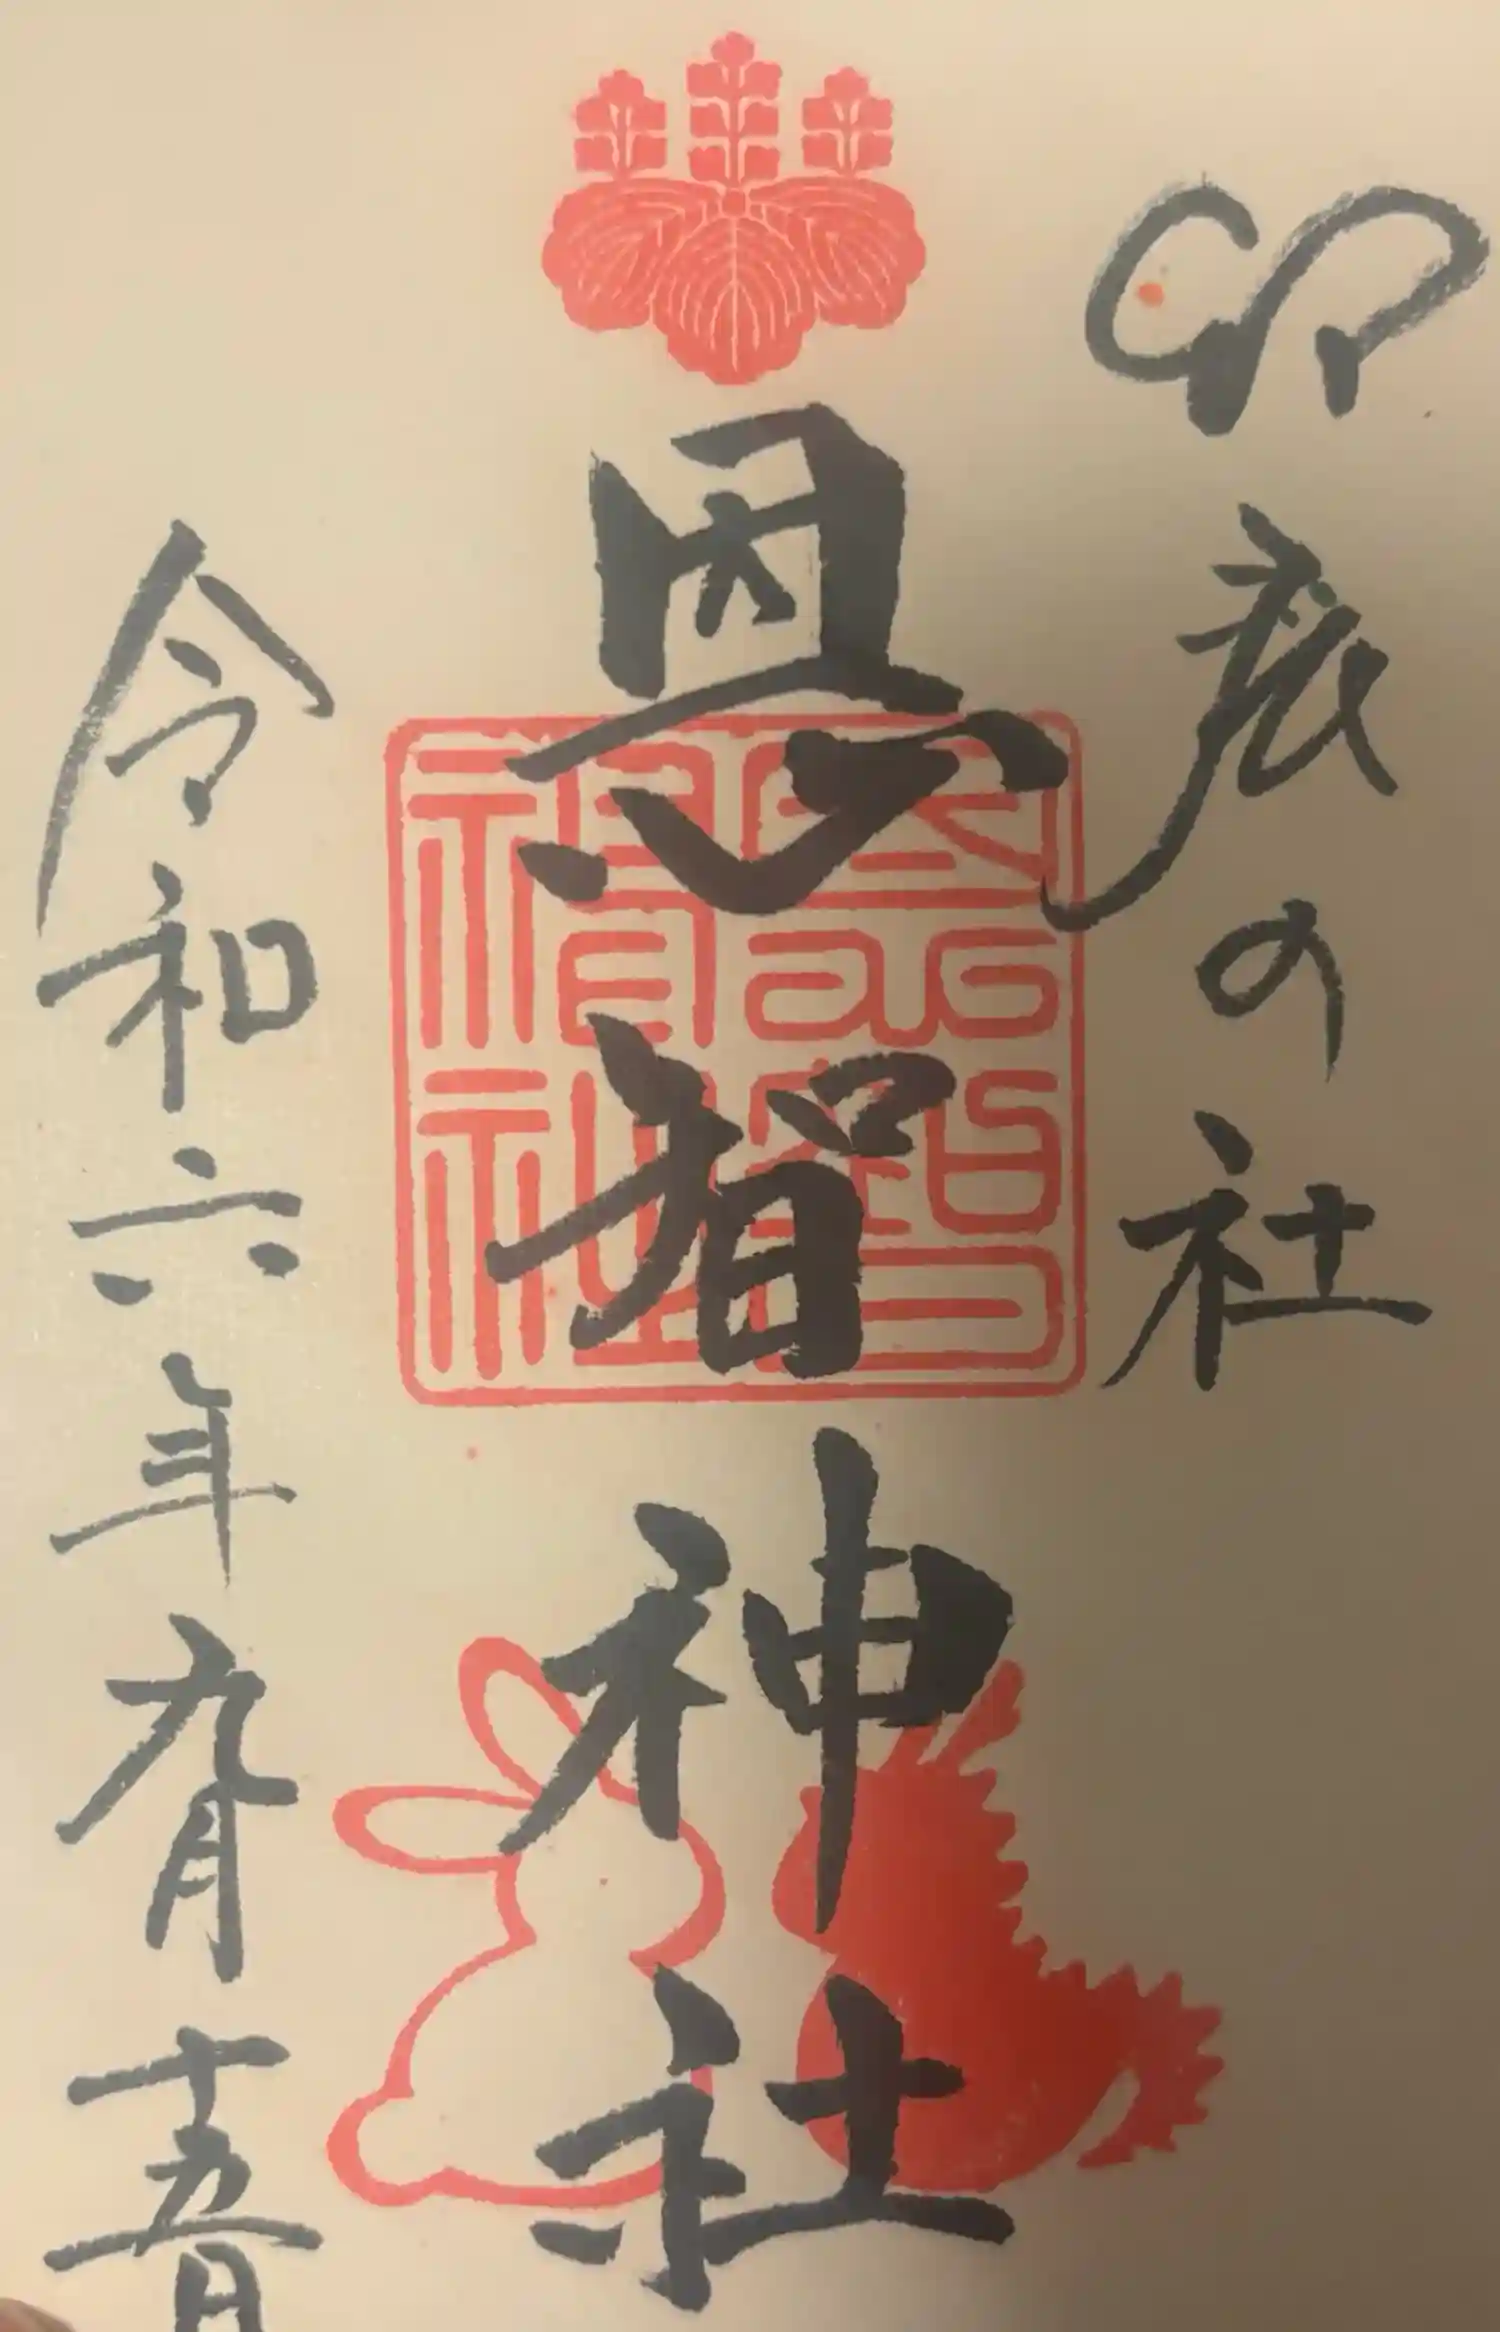 卯辰の社
恩智神社
令和六年九月十五日
恩智神社